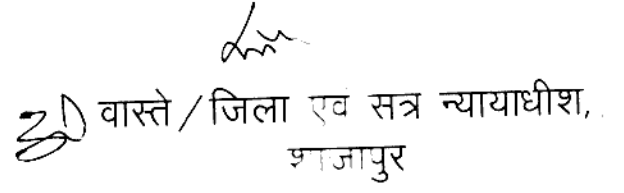 वास्ते/जिला एवं सत्र न्यायाधीश,
शाजापुर